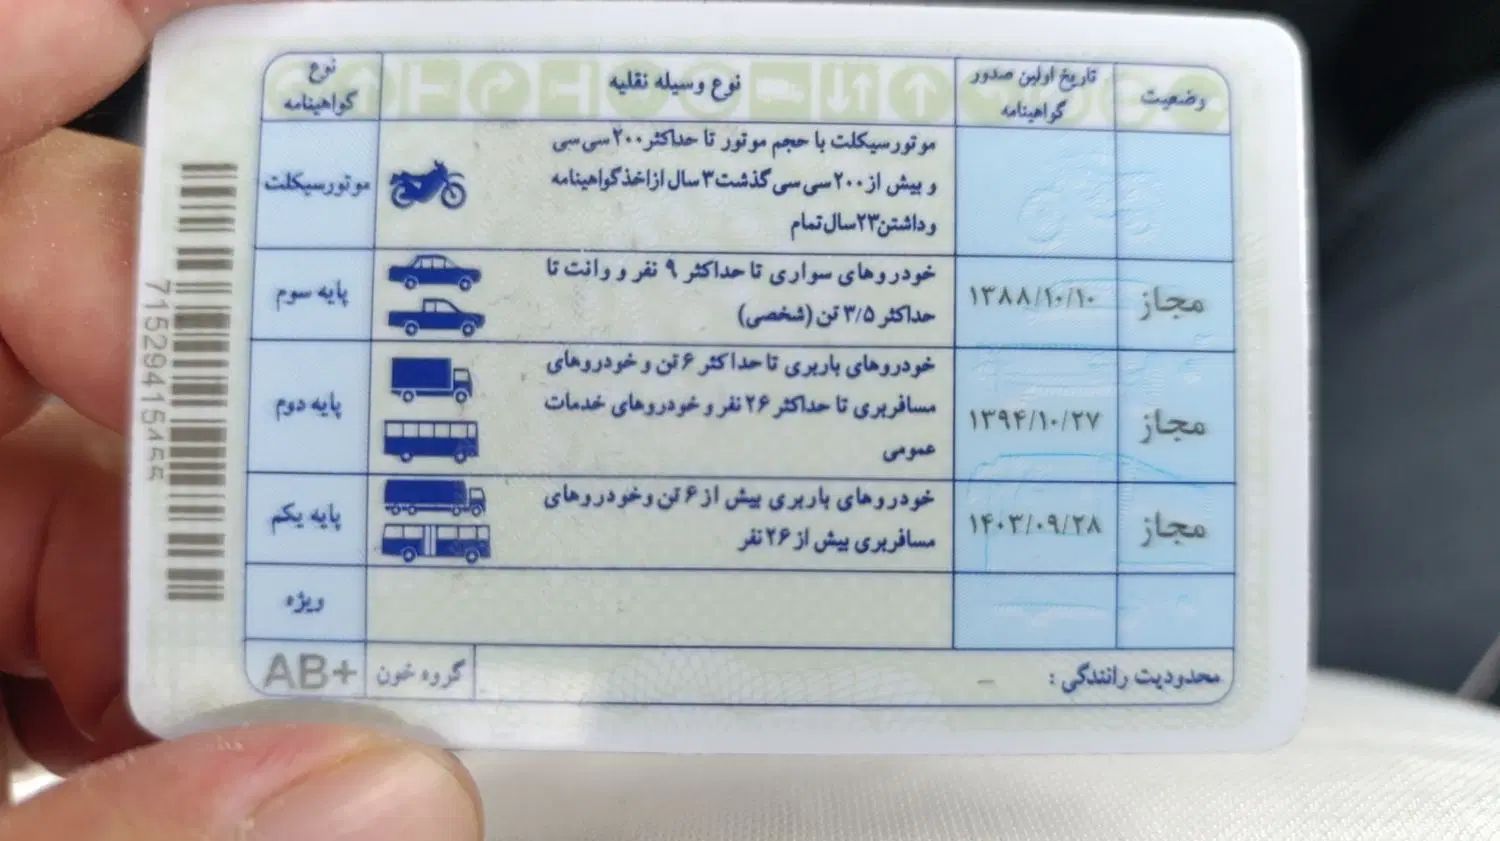 وضعیت
تاریخ اولین صدور
گواهینامه
نوع وسیله نقلیه
نوع
گواهینامه
موتورسیکلت با حجم موتور تا حداکثر ۲۰۰ سی سی
و بیش از ۲۰۰ سی سی گذشت ۳ سال از اخذ گواهینامه
و داشتن ۲۳ سال تمام
موتورسیکلت
مجاز
۱۳۸۸/۱۰/۱۰
خودروهای سواری تا حداکثر ۹ نفر و وانت تا
حداکثر ۳/۵ تن (شخصی)
پایه سوم
مجاز
۱۳۹۴/۱۰/۲۷
خودروهای باربری تا حداکثر ۶ تن و خودروهای
مسافربری تا حداکثر ۲۶ نفر و خودروهای خدمات
عمومی
پایه دوم
مجاز
۱۴۰۳/۰۹/۲۸
خودروهای باربری بیش از ۶ تن وخودروهای
مسافربری بیش از ۲۶ نفر
پایه یکم
ویژه
محدودیت رانندگی : -
گروه خون
AB+
71529415455